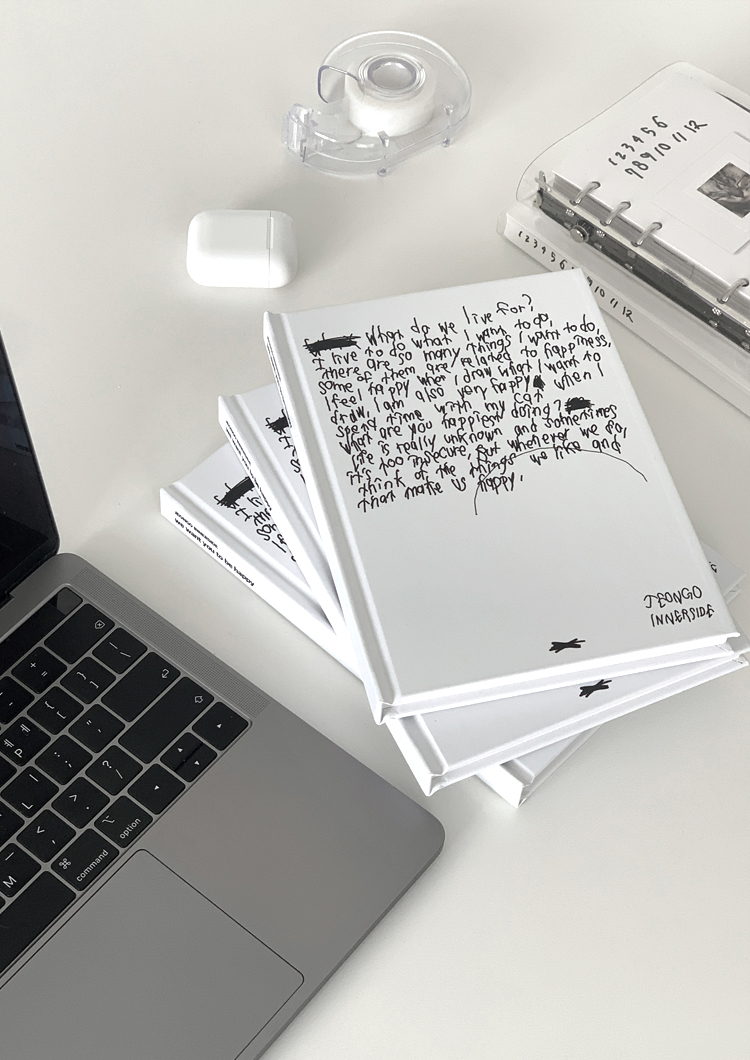 1 2 3 4 5 6
7 8 9 10 11 12
1 2 3 4 5 6
10 11 12
What do we live for?
I live to do what I want to do,
there are so many things I want to do,
some of them are related to happiness,
I feel happy when I draw what I want to
draw, I am also very happy when I
spend time with my cat
what are you happiest doing?
life is really unknown and sometimes
it's too insecure, but whenever we do,
think of the things we like and
that make us happy.
JEONGO
INNERSIDE
we want you to be happy
command
option